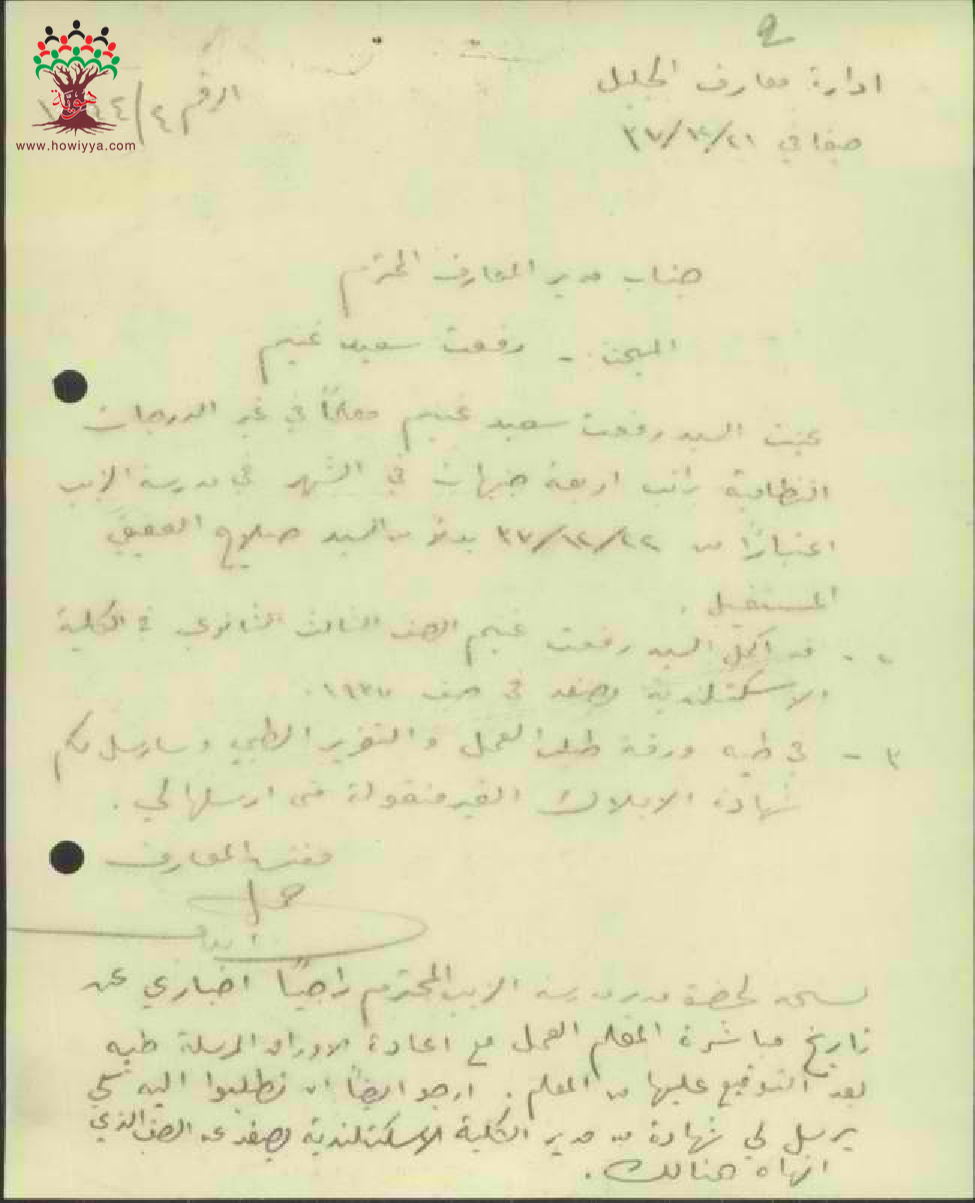 ادارة معارف الجليل
حيفا في ٢١/١٢/٣٧
الرقم
www.howiyya.com
جناب مدير المعارف المحترم
المبحث - رفعت سعيد غنيم
عينت السيد رفعت سعيد غنيم معلمًا في غير الدرجات
النظامية براتب اربعة جنيهات في الشهر في مدرسة الزيب
اعتبارًا من ٢٢/١٢/٣٧ بدلا من السيد صلاح
المستقيل .
٢ - قد اكمل السيد رفعت غنيم الصف الثالث الثانوي في الكلية
الاسكتلندية بصفد في صيف ١٩٣٧.
٣ - في طيه ورقة طلب العمل و التقرير الطبي وسارسل لكم
شهادة الاملاك الغير منقولة متى ارسلها لي .
مفتش المعارف
نسخة لحضرة مدير مدرسة الزيب المحترم راجيًا اخباري عن
تاريخ مباشرة المعلم العمل مع اعادة الاوراق المرسلة طيه
بعد التوقيع عليها من المعلم . ارجو ايضًا ان تطلبوا اليه لكي
يرسل لي شهادة من مدير الكلية الاسكتلندية بصفد عن الصف الذي
انهاه هنالك .